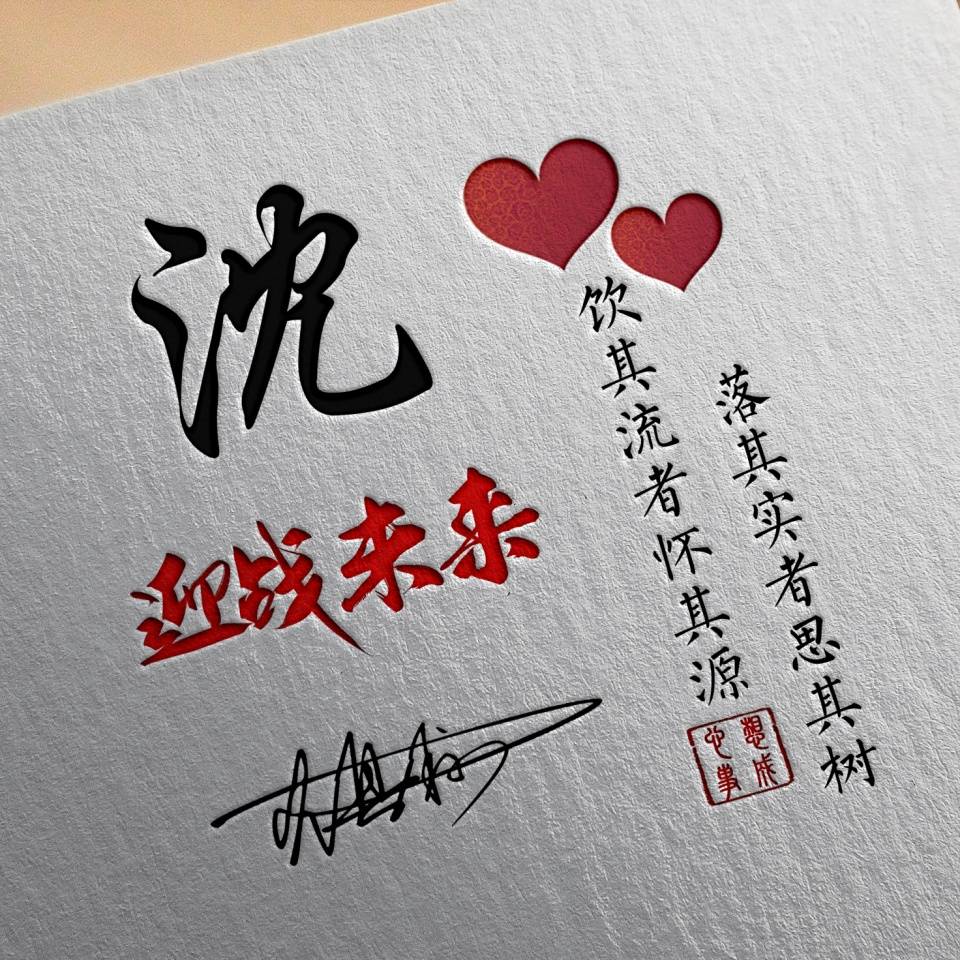 沈
迎战未来
落其实者思其树
饮其流者怀其源
想成
心事